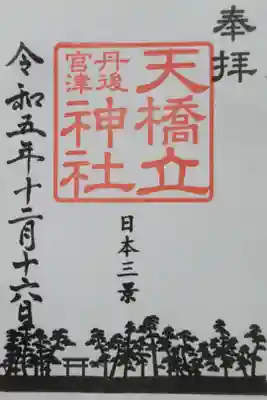 奉拝
天橋立
丹後
宮津
神社
日本三景
令和五年十二月十六日